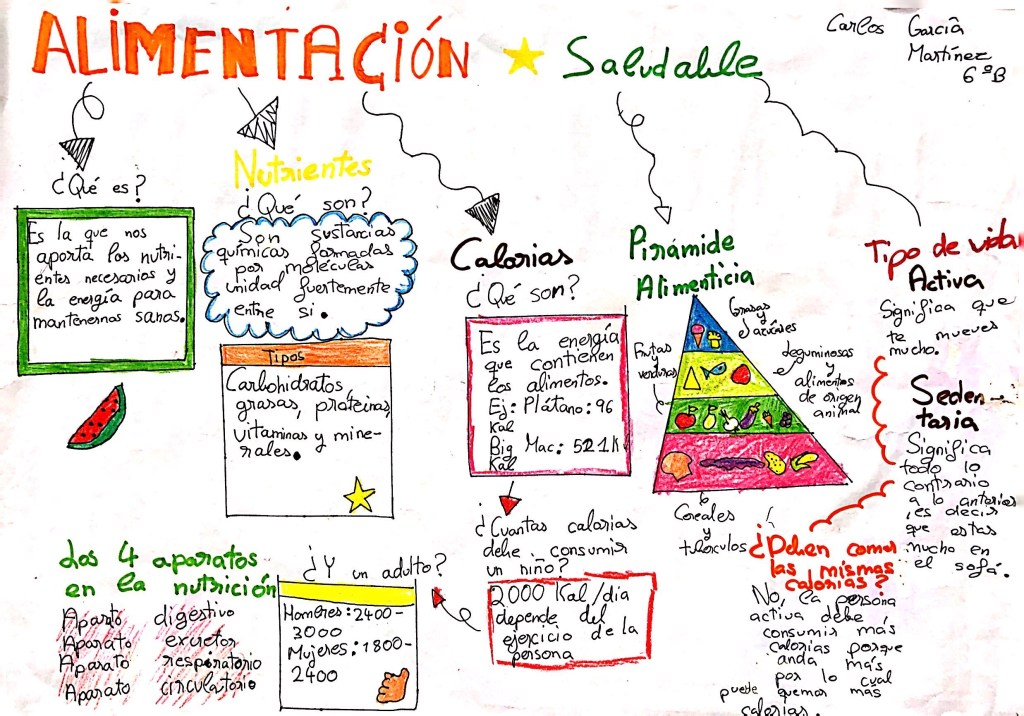 ALIMENTACIÓN ★ Saludable
Carlos García
Martínez
6ºB
¿Qué es?
Es la que nos
aporta los nutri-
entes necesarios y
la energía para
mantenernos sanos.
Nutrientes
¿Qué son?
Son sustarcias
químicas formadas
por moléculas
unidad fuertemente
entre si.
Tipos
Carbohidratos,
grasas, proteínas,
vitaminas y mine-
rales.
Calorias
¿Qué son?
Es la energía
que contienen
los alimentos.
Ej: Plátano: 96
Kal
Big Mac: 521K
Kal
¿Cuantas calorias
debe consumir
un niño?
2000 Kal/dia
depende del
ejercicio de la
persona
¿Y un adulto?
Hombres: 2400-
3000
Mujeres: 1800-
2400
Los 4 aparatos
en la nutrición
Aparato digestivo
Aparato excretor
Aparato respiratorio
Aparato circulatorio
Pirámide
Alimenticia
Grasas
y azúcares
Frutas
y
verduras
deguminosas
y
alimentos
de origen
animal
Cereales
y
tubérculos
Tipo de vida
Activa
Significa que
te mueves
mucho.
Seden-
taria
Significa
todo lo
contrario
a lo anterior
, es decir
que estas
mucho en
el sofá.
¿Deben comer
las mismas
calorías?
No, la persona
activa debe
consumir más
calorías porque
anda más
por lo cual
puede quemar más
calorías.